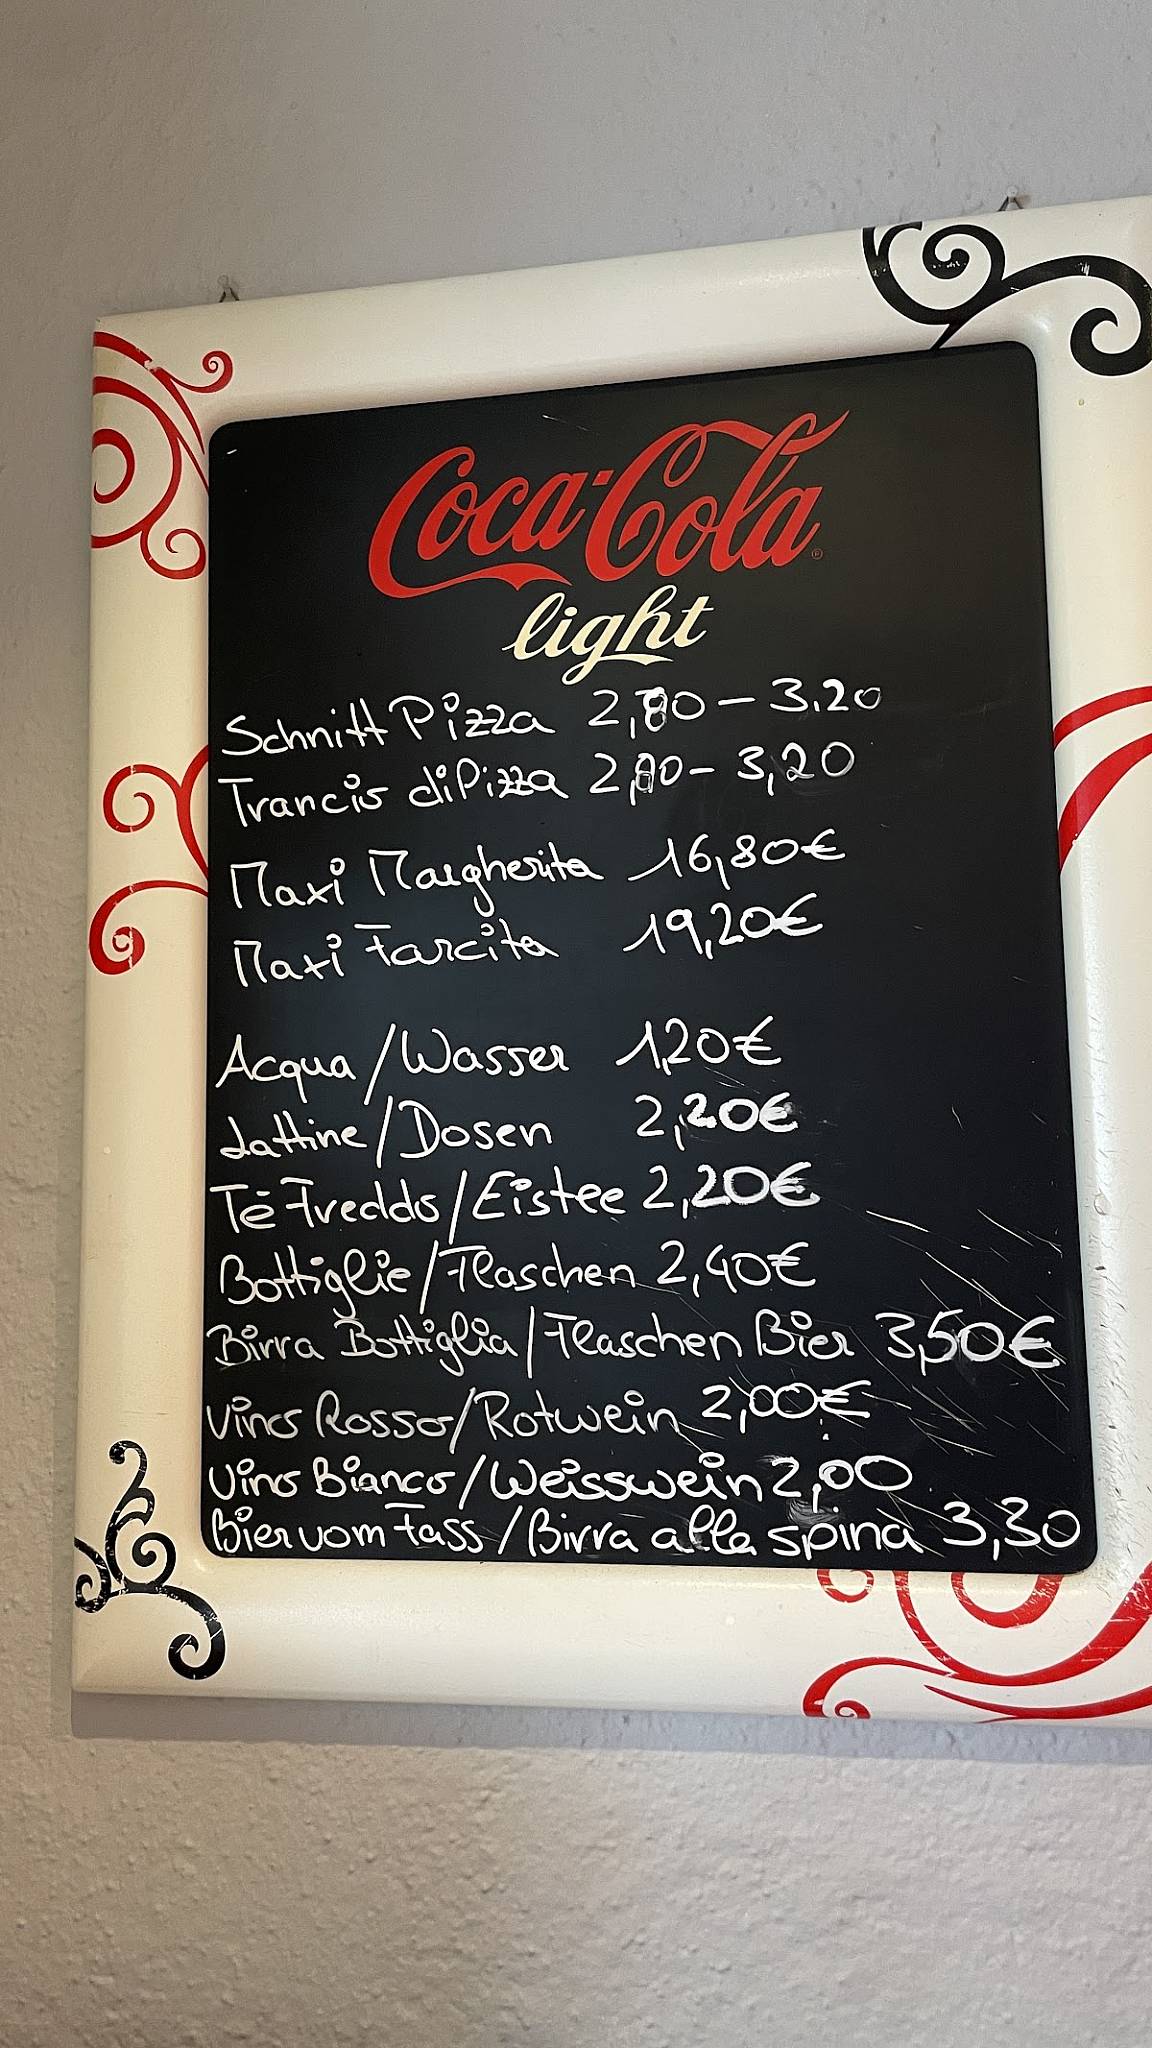 Coca-Cola
light
Schnitt Pizza 2,80 - 3.20
Trancio di Pizza 2,80 - 3,20
Maxi Margherita 16,80€
Maxi Farcita 19,20€
Acqua/Wasser 1,20€
Lattine/Dosen 2,20€
Tè Freddo/Eistee 2,20€
Bottiglie/Flaschen 2,40€
Birra Bottiglia/Flaschen Bier 3,50€
Vino Rosso/Rotwein 2,00€
Vino Bianco/Weisswein 2,00
Bier vom Fass/Birra alla spina 3,30